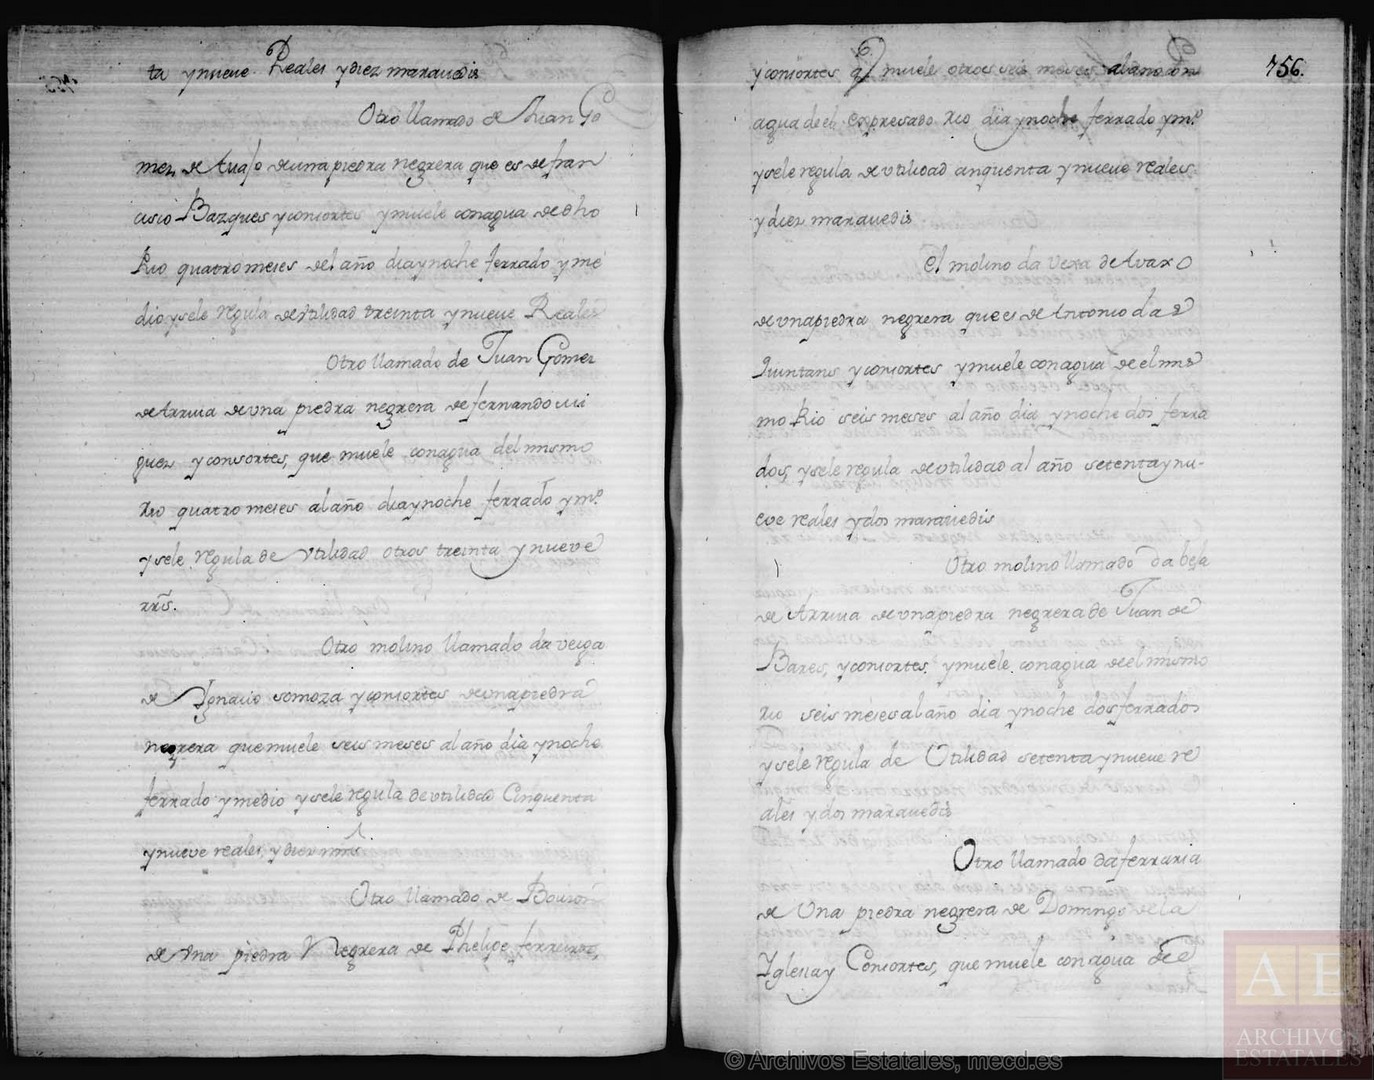 ta y nueve Reales y diez maravedis
Otro llamado de Juan Go
mez de Avajo de una piedra negrera que es de fran
cisco Bazques y consortes y muele con agua de dho
Rio quatro meses del año dia y noche ferrado y me
dio y sele regula de Utilidad treinta y nueve Reales
Otro llamado de Juan Gomez
de Arriva de una piedra negrera de fernando
quez y consortes, que muele con agua del mismo
Rio quatro meses al año dia y noche ferrado y mº
y sele regula de Utilidad otros treinta y nueve
rrs.
Otro molino llamado da veiga
de Ignacio somoza y consortes de una piedra
negrera que muele seis meses al año dia y noche
ferrado y medio y sele regula de utilidad Cinquenta
y nueve reales, y diez mrs
Otro llamado de
de Una piedra Negrera de Phelipe ferreiro,
756.
y consortes q muele otros seis meses al año con
agua de el expresado Rio dia y noche ferrado y mº
y sele regula de Utilidad cinquenta y nueve reales
y diez maravedis
El molino da Vexa de Avaxo
de una piedra negrera que es de Antonio da
Quintans y consortes y muele con agua de el mis
mo Rio seis meses al año dia y noche dos ferra
dos, y sele regula de utilidad al año setenta y nu-
eve reales y dos maravedis
Otro molino llamado da beja
de Arriva de una piedra negrera de Juan de
Bares, y consortes, y muele con agua de el mismo
Rio seis meses al año dia y noche dos ferrados
y sele regula de Utilidad setenta y nueve re
ales y dos maravedis
Otro llamado da ferraria
de Una piedra negrera de Domingo de la
Iglesia y Consortes, que muele con agua de e
AE
ARCHIVOS
ESTATALES
© Archivos Estatales, mecd.es